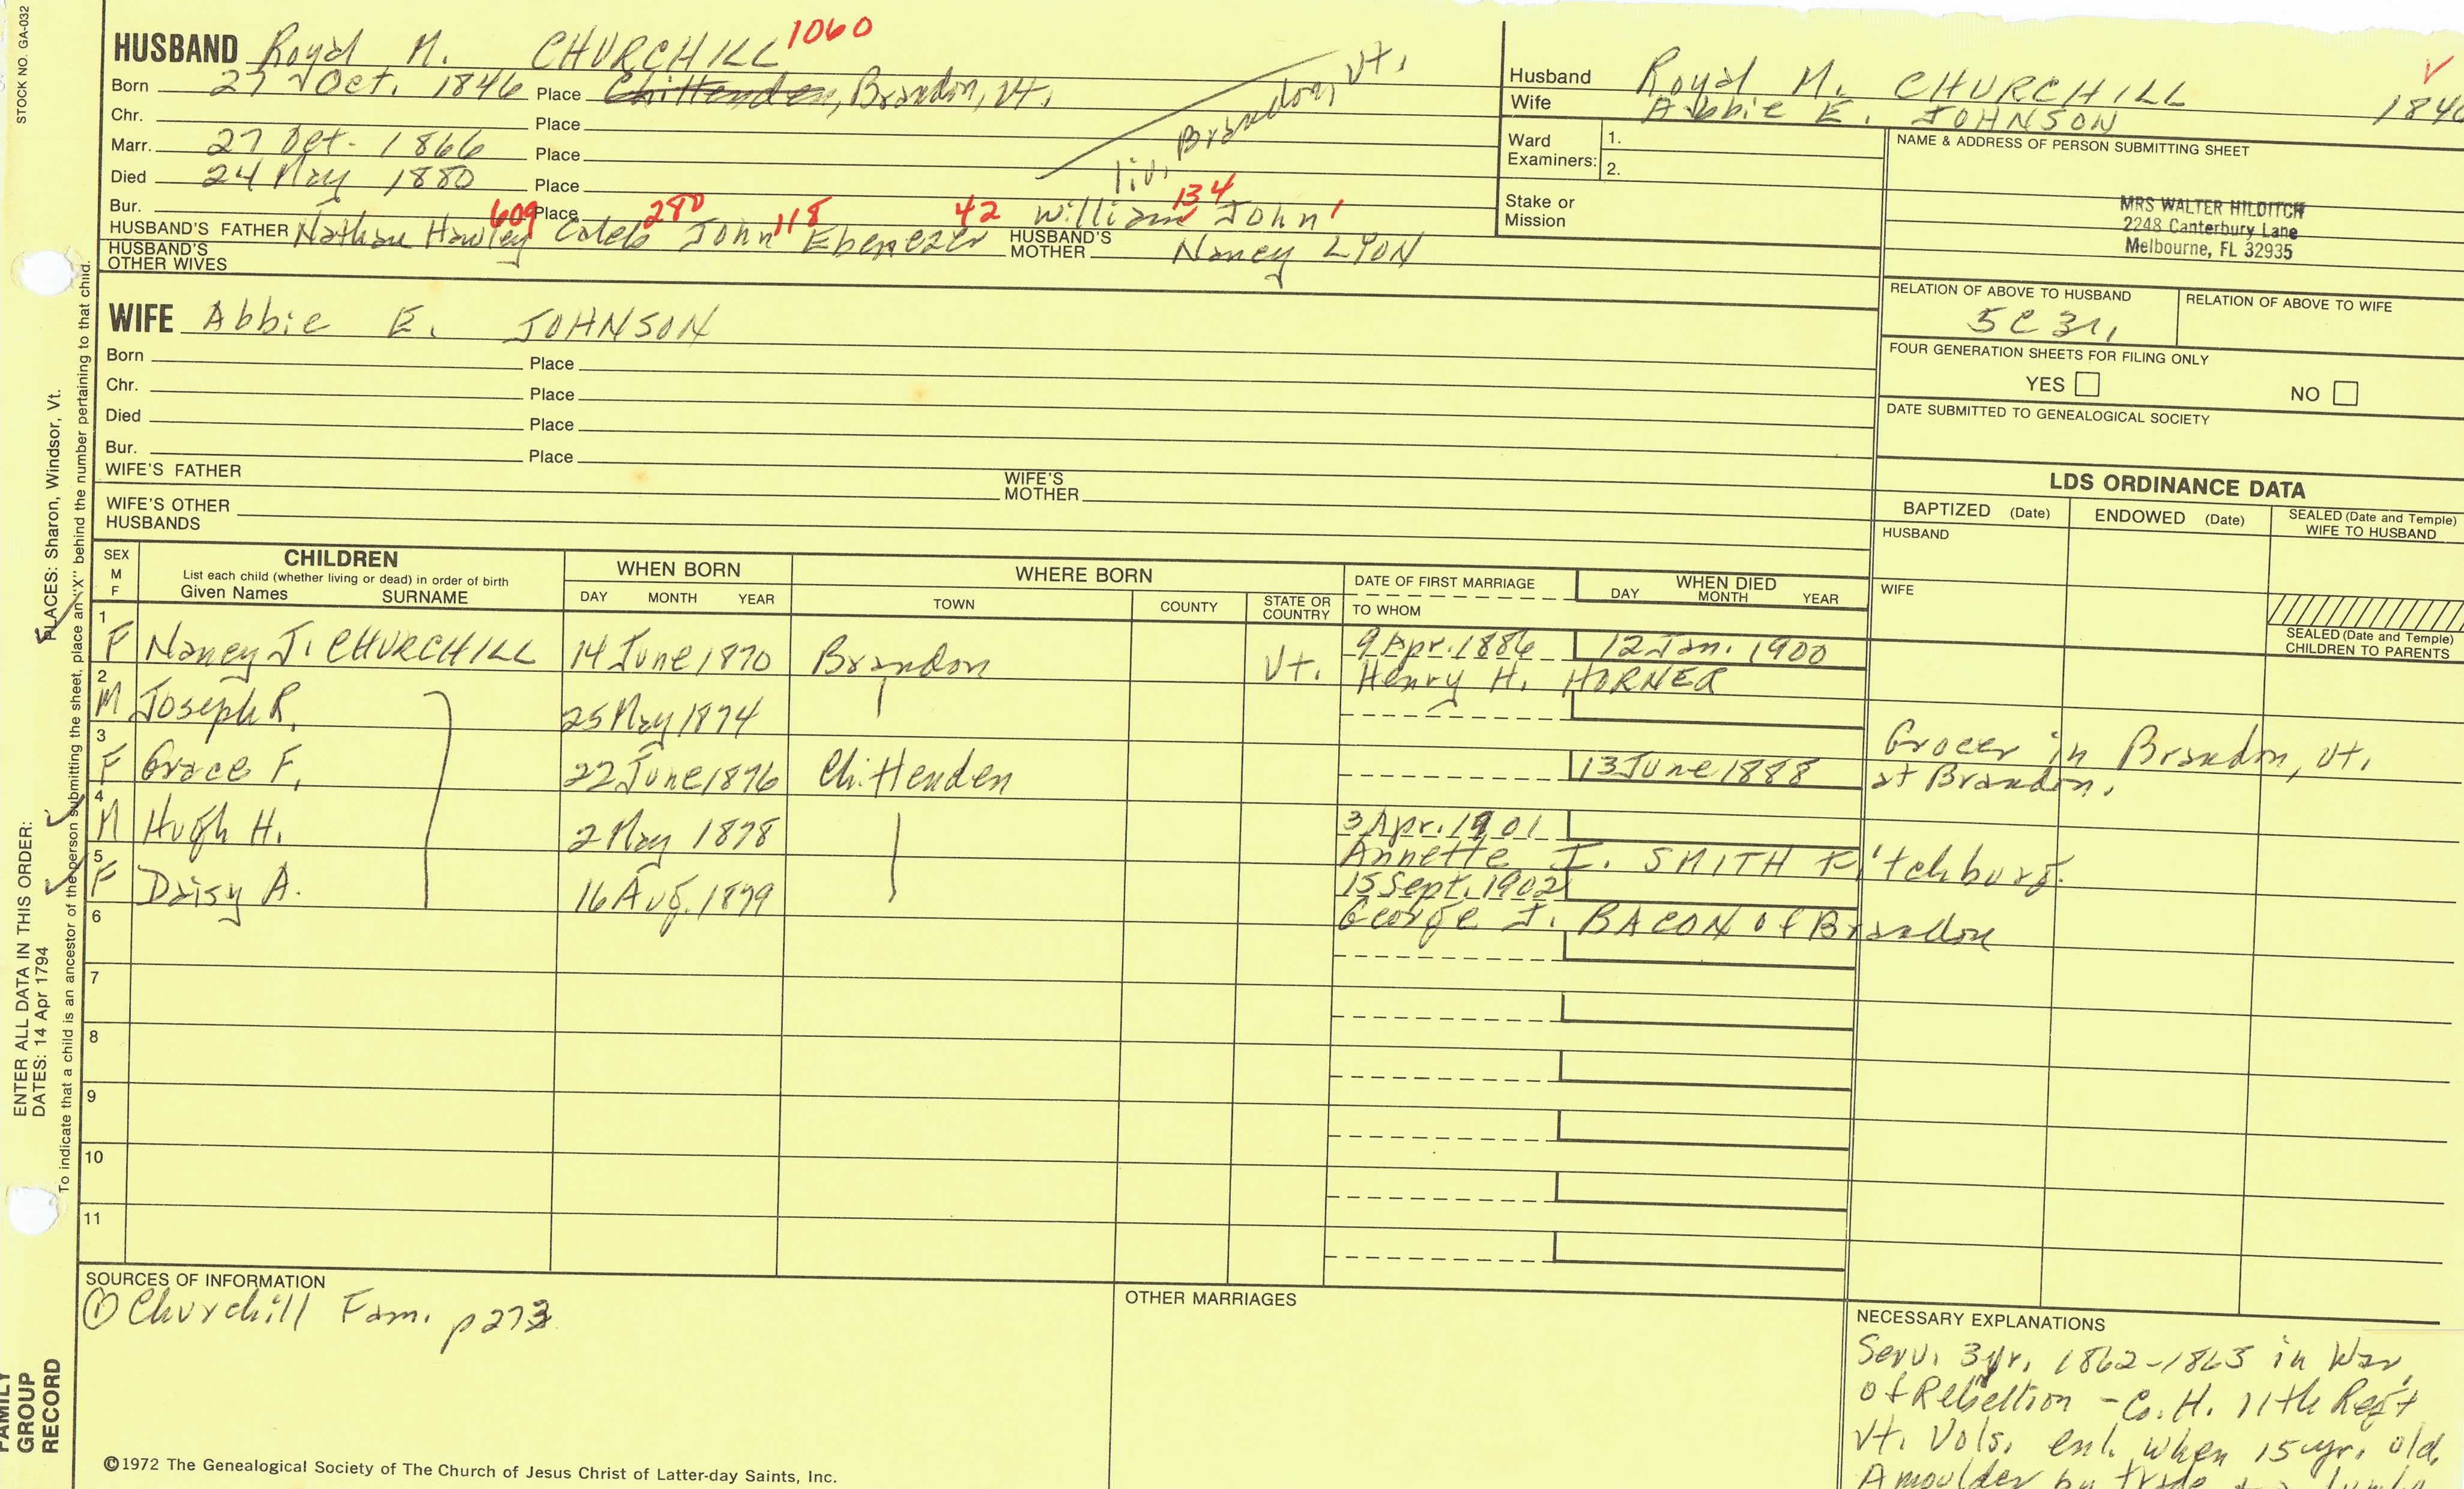 STOCK NO. GA-032
HUSBAND Royal M. CHURCHILL 1060
Born 27 Oct. 1846 Place Chittenden, Brandon, Vt.
Chr. Place
Marr. 27 Oct. 1866 Place
Died 24 May 1880 Place
liv. Brandon, Vt.
Bur. Place
HUSBAND'S FATHER Nathan Hawley 609 Caleb 280 John 118 Ebenezer 42 William 134 John 1
HUSBAND'S MOTHER Nancy LYON
HUSBAND'S OTHER WIVES
WIFE Abbie E. JOHNSON
Born Place
Chr. Place
Died Place
Bur. Place
WIFE'S FATHER
WIFE'S MOTHER
WIFE'S OTHER HUSBANDS
Husband Royal M. CHURCHILL
Wife Abbie E. JOHNSON
Ward Examiners: 1.
2.
Stake or Mission
NAME & ADDRESS OF PERSON SUBMITTING SHEET
MRS WALTER HILDITCH
2248 Canterbury Lane
Melbourne, FL 32935
RELATION OF ABOVE TO HUSBAND
5C3r,
RELATION OF ABOVE TO WIFE
FOUR GENERATION SHEETS FOR FILING ONLY
YES NO
DATE SUBMITTED TO GENEALOGICAL SOCIETY
LDS ORDINANCE DATA
BAPTIZED (Date) ENDOWED (Date) SEALED (Date and Temple) WIFE TO HUSBAND
HUSBAND
WIFE
SEALED (Date and Temple) CHILDREN TO PARENTS
SEX M F
CHILDREN
List each child (whether living or dead) in order of birth
Given Names SURNAME
WHEN BORN
DAY MONTH YEAR
WHERE BORN
TOWN COUNTY STATE OR COUNTRY
DATE OF FIRST MARRIAGE
TO WHOM
WHEN DIED
DAY MONTH YEAR
1 F Nancy J. CHURCHILL 14 June 1870 Brandon Vt. 9 Apr. 1886 12 Jan. 1900
Henry H. HORNER
2 M Joseph R. 25 May 1874
Grocer in Brandon, Vt.
3 F Grace F. 22 June 1876 Chittenden 13 June 1888 at Brandon.
4 M Hugh H. 2 May 1878 3 Apr. 1901
Annette I. SMITH Fitchburg.
5 F Daisy A. 16 Aug. 1879 15 Sept. 1902
George J. BACON of Brandon
6
7
8
9
10
11
SOURCES OF INFORMATION
① Churchill Fam. p273
OTHER MARRIAGES
NECESSARY EXPLANATIONS
Serv. 3yr. 1862-1865 in War
of Rebellion - Co. H. 11th Reg't
Vt. Vols. enl. when 15 yr. old.
A moulder by trade
©1972 The Genealogical Society of The Church of Jesus Christ of Latter-day Saints, Inc.
FAMILY GROUP RECORD
ENTER ALL DATA IN THIS ORDER:
DATES: 14 Apr 1794
PLACES: Sharon, Windsor, Vt.
To indicate that a child is an ancestor of the person submitting the sheet, place an "X" behind the number pertaining to that child.